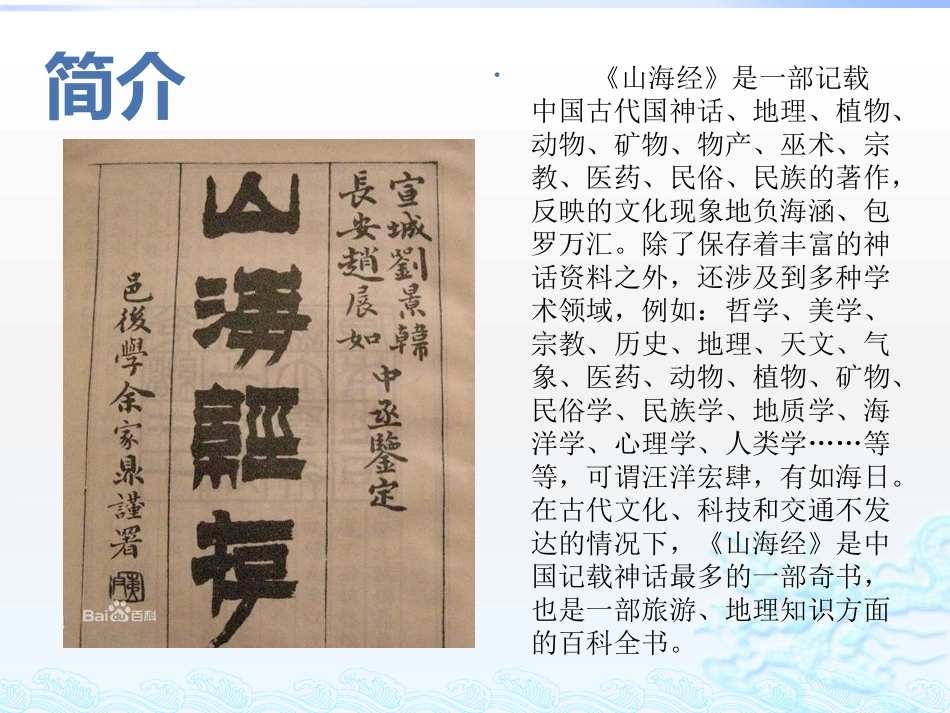 简介
《山海经》是一部记载
中国古代国神话、地理、植物、
动物、矿物、物产、巫术、宗
教、医药、民俗、民族的著作，
反映的文化现象地负海涵、包
罗万汇。除了保存着丰富的神
话资料之外，还涉及到多种学
术领域，例如：哲学、美学、
宗教、历史、地理、天文、气
象、医药、动物、植物、矿物、
民俗学、民族学、地质学、海
洋学、心理学、人类学……等
等，可谓汪洋宏肆，有如海日。
在古代文化、科技和交通不发
达的情况下，《山海经》是中
国记载神话最多的一部奇书，
也是一部旅游、地理知识方面
的百科全书。
宣城劉景韓
長安趙展如
中丞鑒定
山海經存
邑後學余家鼎謹署
Bai du 百科